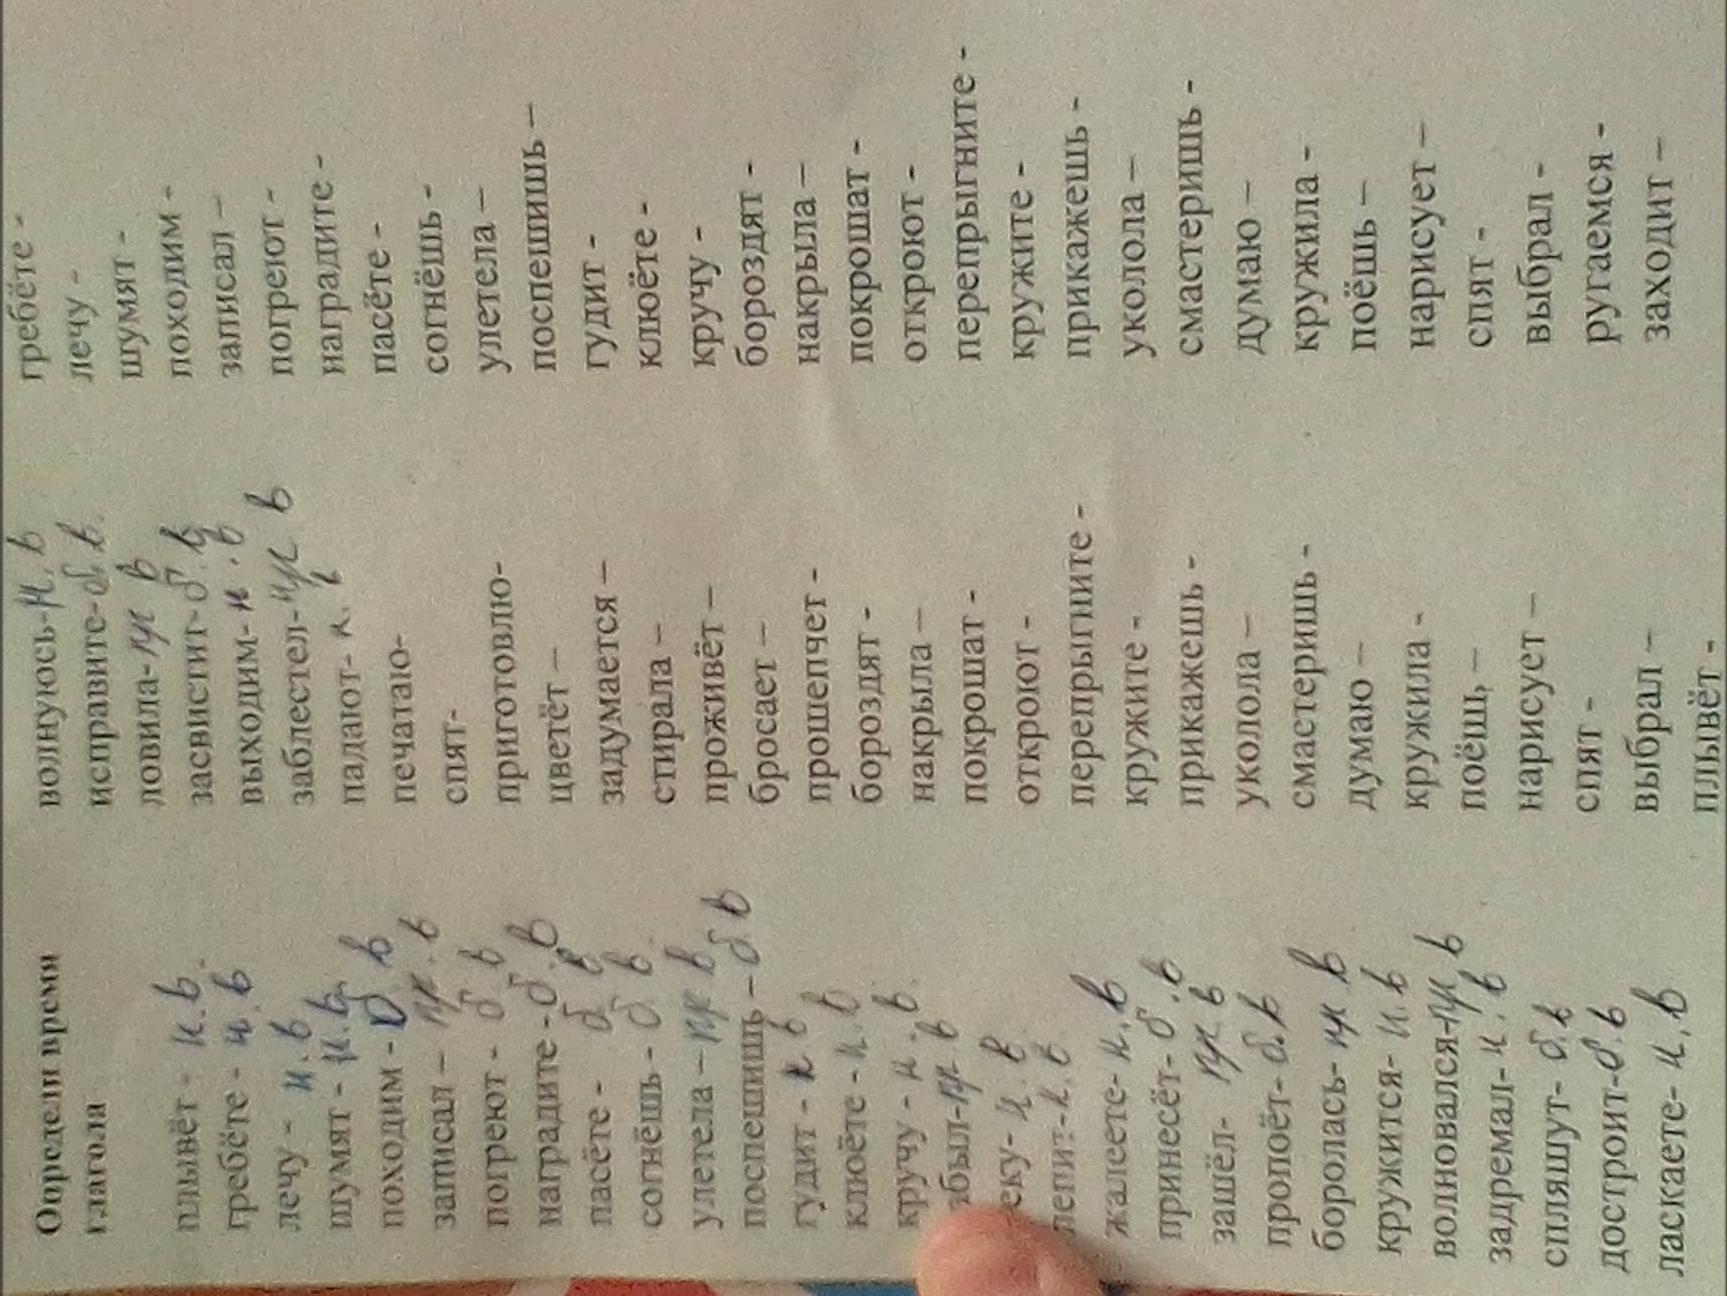 Определи время
глагола
плывёт - н.в.
гребёте - н.в
лечу - н.в
шумят - н.в.
походим - б в
записал – пр.в
погреют - б в
наградите - б.в
пасёте - б в
согнёшь - б в
улетела – пр в
поспешишь – б в
гудит - н в
клюёте - н.в
кручу - н.в.
был-пр в
еку- н.в
лепит-н.в.
жалеете- н.в
принесёт- б.в
зашёл- пр.в
пропоёт- б.в
боролась- пр в
кружится- н.в
волновался-пр в
задремал- н.в
спляшут- б.в
достроит-б.в
ласкаете- н.в
волнуюсь-н.в
исправите-б.в.
ловила-пр в
засвистит-б.в
выходим- н.в
заблестел-пр в
падают- н.в
печатаю-
спят-
приготовлю-
цветёт –
задумается –
стирала –
проживёт –
бросает –
прошепчет -
бороздят -
накрыла –
покрошат -
откроют -
перепрыгните -
кружите -
прикажешь -
уколола –
смастеришь -
думаю –
кружила -
поёшь –
нарисует –
спят -
выбрал –
плывёт -
гребёте -
лечу -
шумят -
походим -
записал –
погреют -
наградите -
пасёте -
согнёшь -
улетела –
поспешишь –
гудит -
клюёте -
кручу -
бороздят -
накрыла –
покрошат -
откроют -
перепрыгните -
кружите -
прикажешь -
уколола –
смастеришь -
думаю –
кружила -
поёшь –
нарисует –
спят -
выбрал -
ругаемся -
заходит –